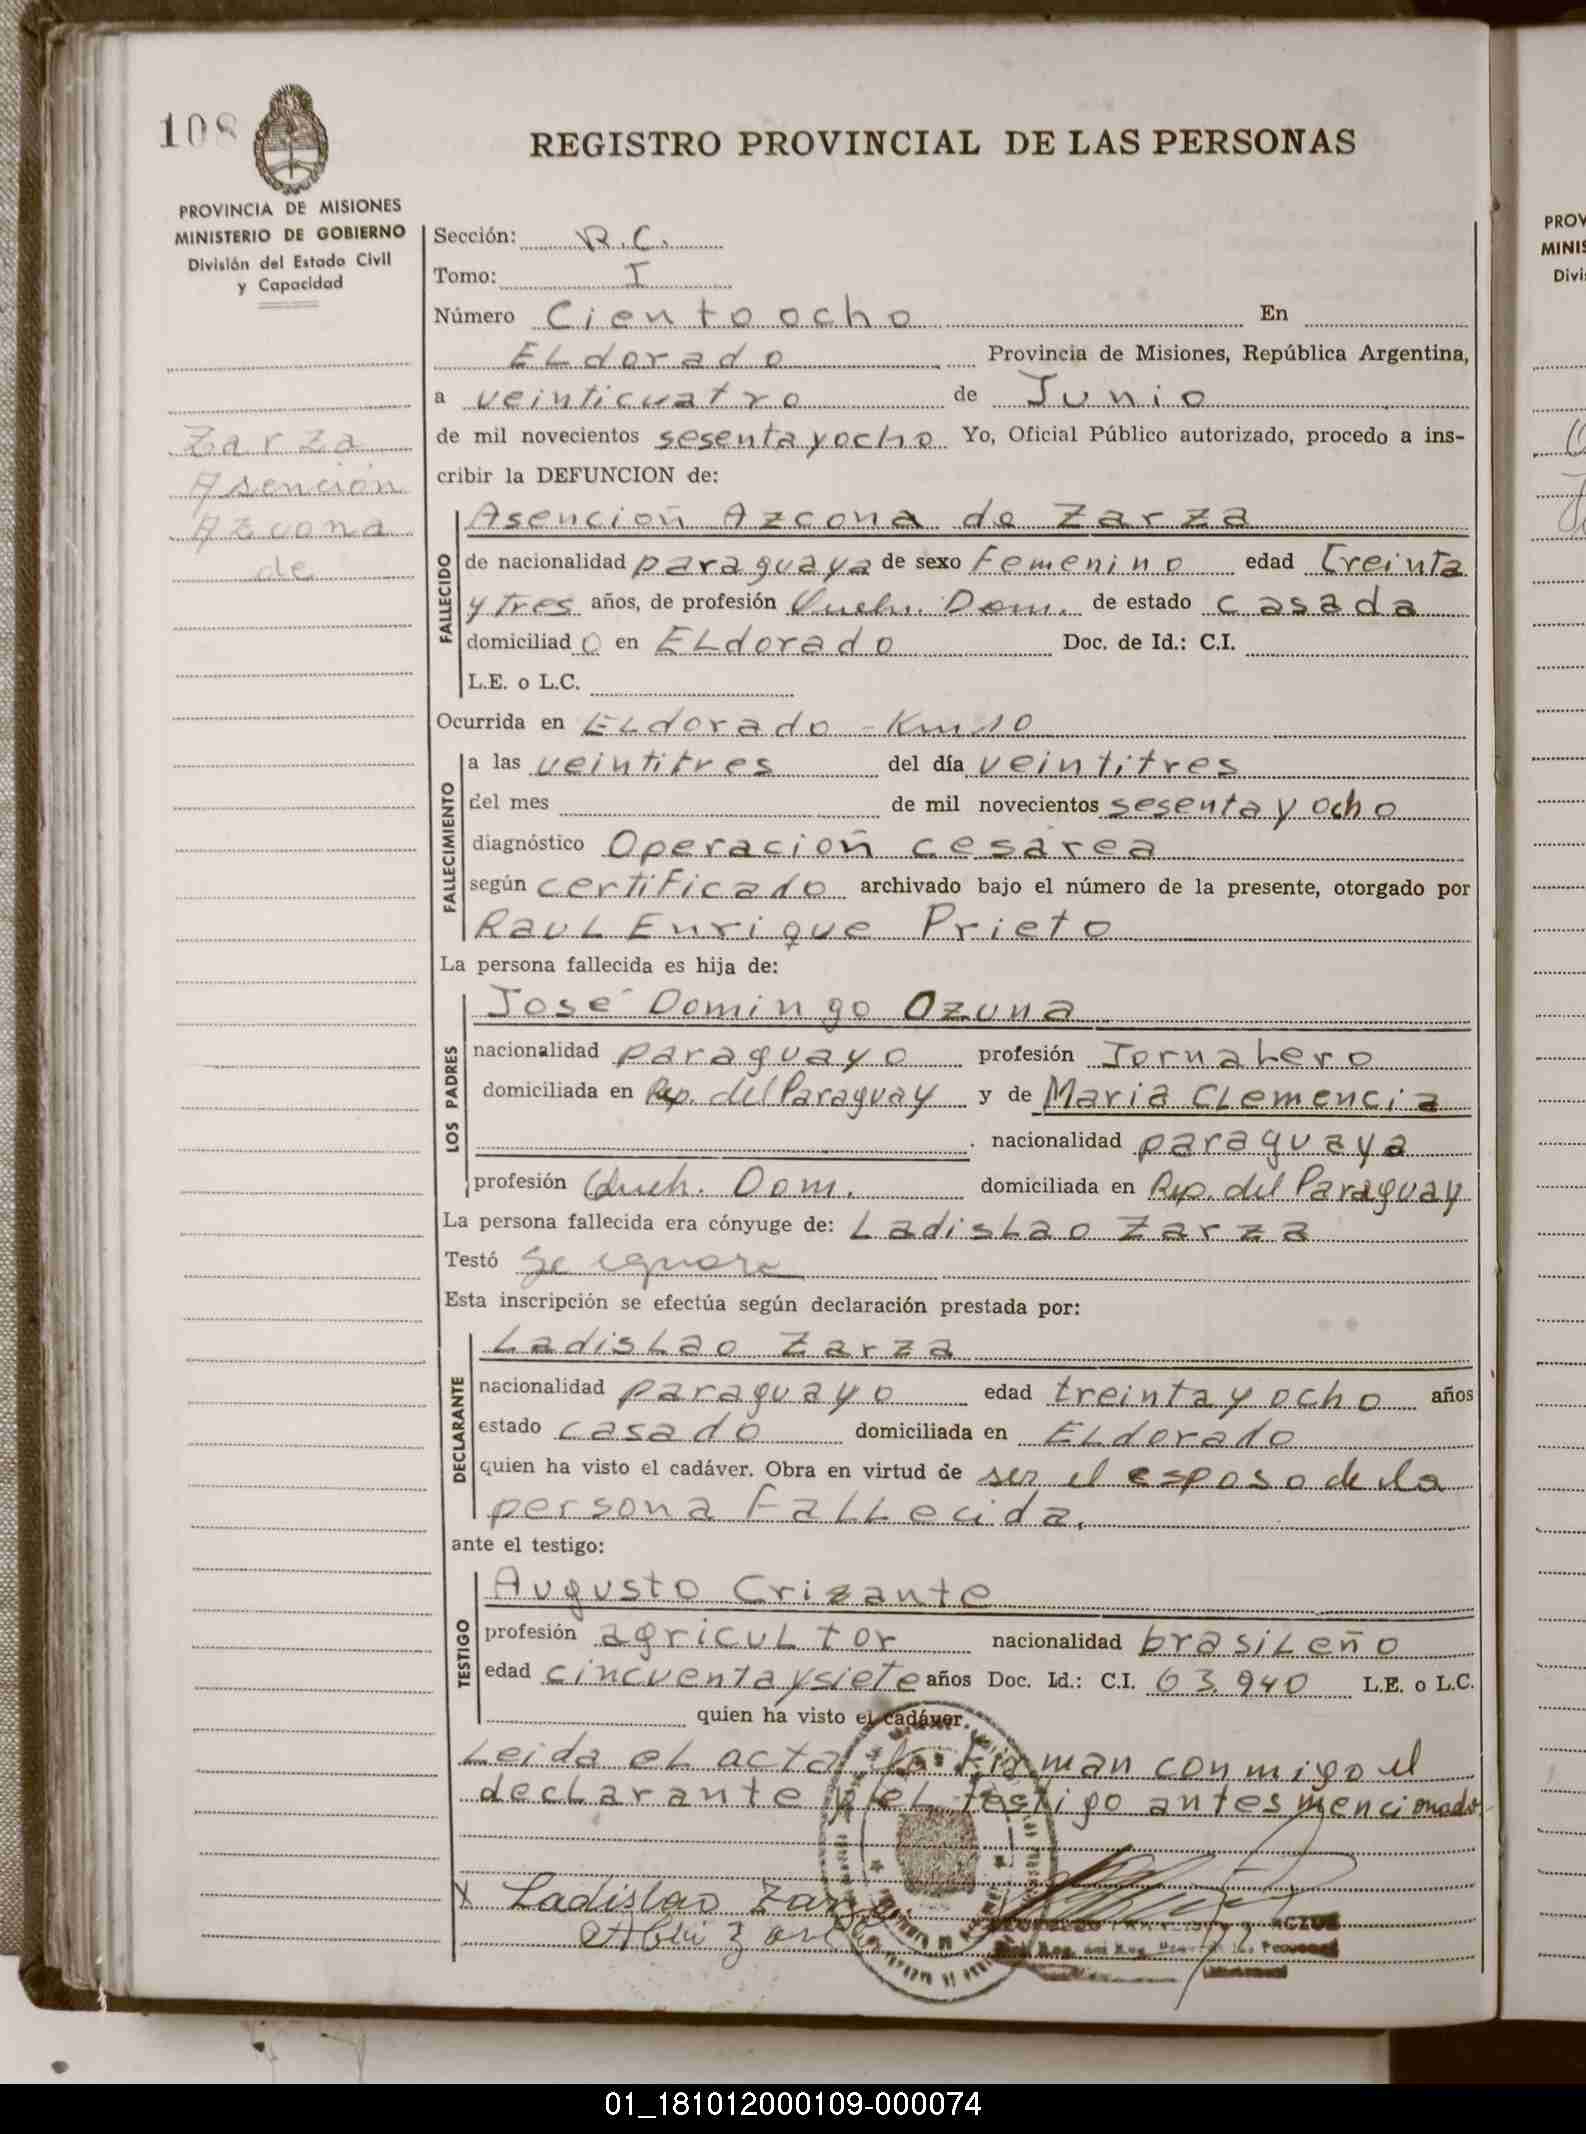 108
REGISTRO PROVINCIAL DE LAS PERSONAS
PROVINCIA DE MISIONES
MINISTERIO DE GOBIERNO
División del Estado Civil
y Capacidad
Zarza
Asención
Azcona
de
Sección: R.C.
Tomo: I
Número Ciento ocho En
ELdorado Provincia de Misiones, República Argentina,
a veinticuatro de Junio
de mil novecientos sesenta y ocho Yo, Oficial Público autorizado, procedo a ins-
cribir la DEFUNCION de:
FALLECIDO
Asencioñ Azcona de Zarza
de nacionalidad paraguaya de sexo Femenino edad treinta
y tres años, de profesión Queh. Dom. de estado casada
domiciliad o en ELdorado Doc. de Id.: C.I.
L.E. o L.C.
Ocurrida en ELdorado - Km 10
FALLECIMIENTO
a las veintitres del día veintitres
del mes de mil novecientos sesenta y ocho
diagnóstico Operacioñ cesárea
según certificado archivado bajo el número de la presente, otorgado por
RauL Enrique Prieto
La persona fallecida es hija de:
LOS PADRES
José Domingo Ozuna
nacionalidad paraguayo profesión JornaLero
domiciliada en Rep. del Paraguay y de Maria CLemencia
nacionalidad paraguaya
profesión Queh. Dom. domiciliada en Rep. del Paraguay
La persona fallecida era cónyuge de: LadisLao Zarza
Testó Se ignora
Esta inscripción se efectúa según declaración prestada por:
DECLARANTE
LadisLao Zarza
nacionalidad paraguayo edad treinta y ocho años
estado casado domiciliada en ELdorado
quien ha visto el cadáver. Obra en virtud de ser el esposo de la
persona FaLLecida.
ante el testigo:
TESTIGO
Augusto Crizante
profesión agricuLtor nacionalidad brasiLeño
edad cincuenta y siete años Doc. Id.: C.I. 63.940 L.E. o L.C.
quien ha visto el cadáver.
Leida eL acta la Firman conmigo el
decLarante y eL testigo antes mencionado
X Ladislao Zarza
PROV
MINIS
Divi
01_181012000109-000074